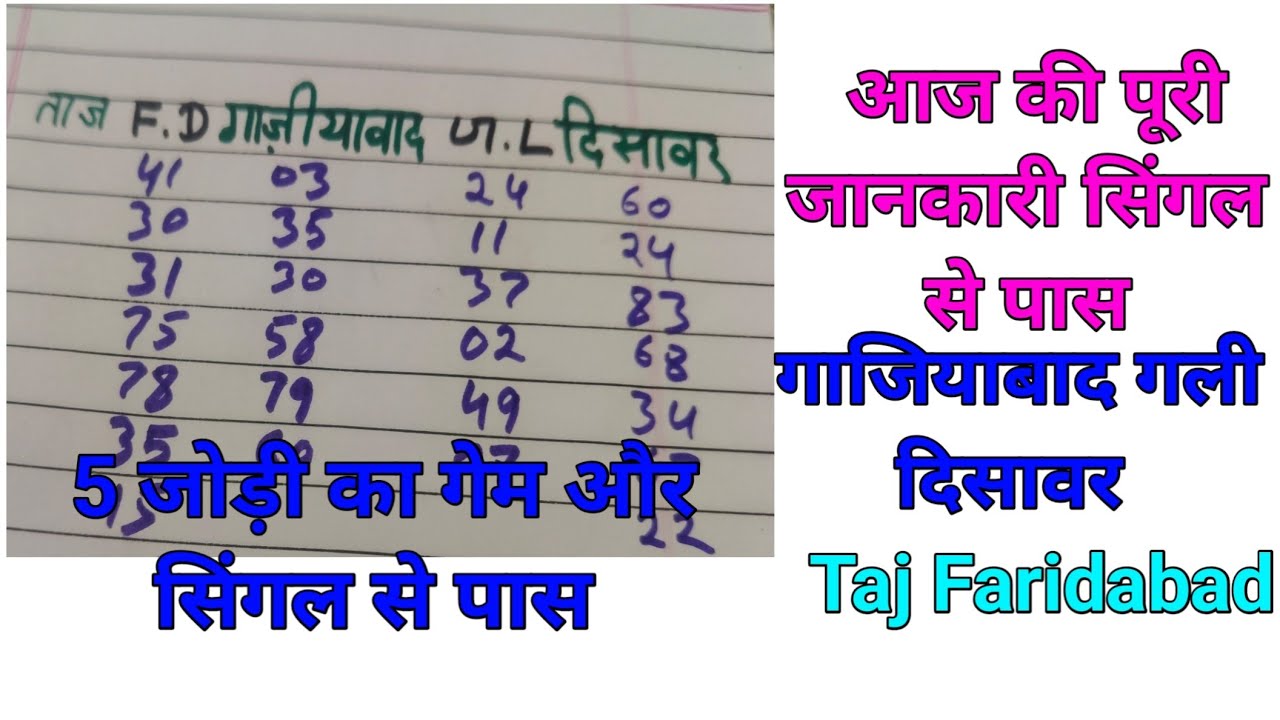 ताज F.D गाज़ीयावाद ज.L दिसावर
41 03 24 60
30 35 11 24
31 30 37 83
75 58 02 68
78 79 49 34
35
22
5 जोड़ी का गेम और
सिंगल से पास
आज की पूरी
जानकारी सिंगल
से पास
गाजियाबाद गली
दिसावर
Taj Faridabad